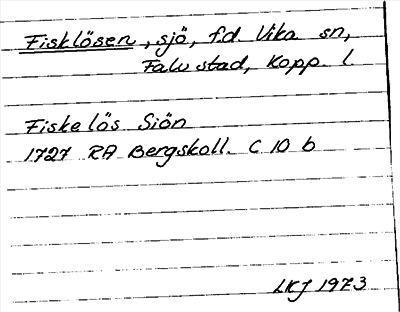 Fisklösen, sjö, f.d. Vika sn,
Falu stad, Kopp. l.
Fiskelös Siön
1727 RA Bergskoll. C 10 b
LKJ 1973